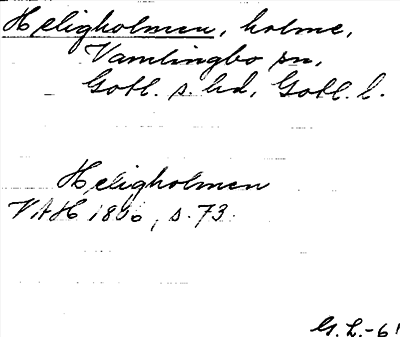 Heligholmen, holme,
Vamlingbo sn,
Gotl. s. hd, Gotl. l.
Heligholmen
VAH 1806, s. 73.
G. L. -61